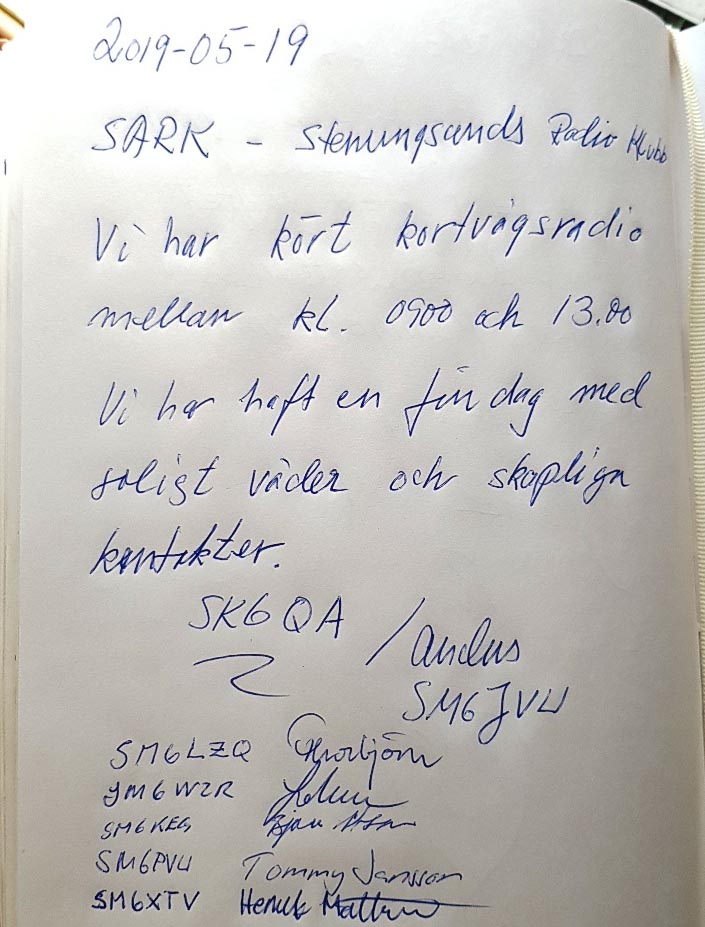 2019-05-19
SARK - Stenungsunds Radio Klubb
Vi har kört kortvågsradio
mellan kl. 0900 och 13.00
Vi har haft en fin dag med
soligt väder och skapliga
kontakter.
SK6QA
/Anders
SM6JVU
SM6LZQ Thorbjörn
SM6WZR
SM6KEG
SM6PVU Tommy Jansson
SM6XTV Henrik